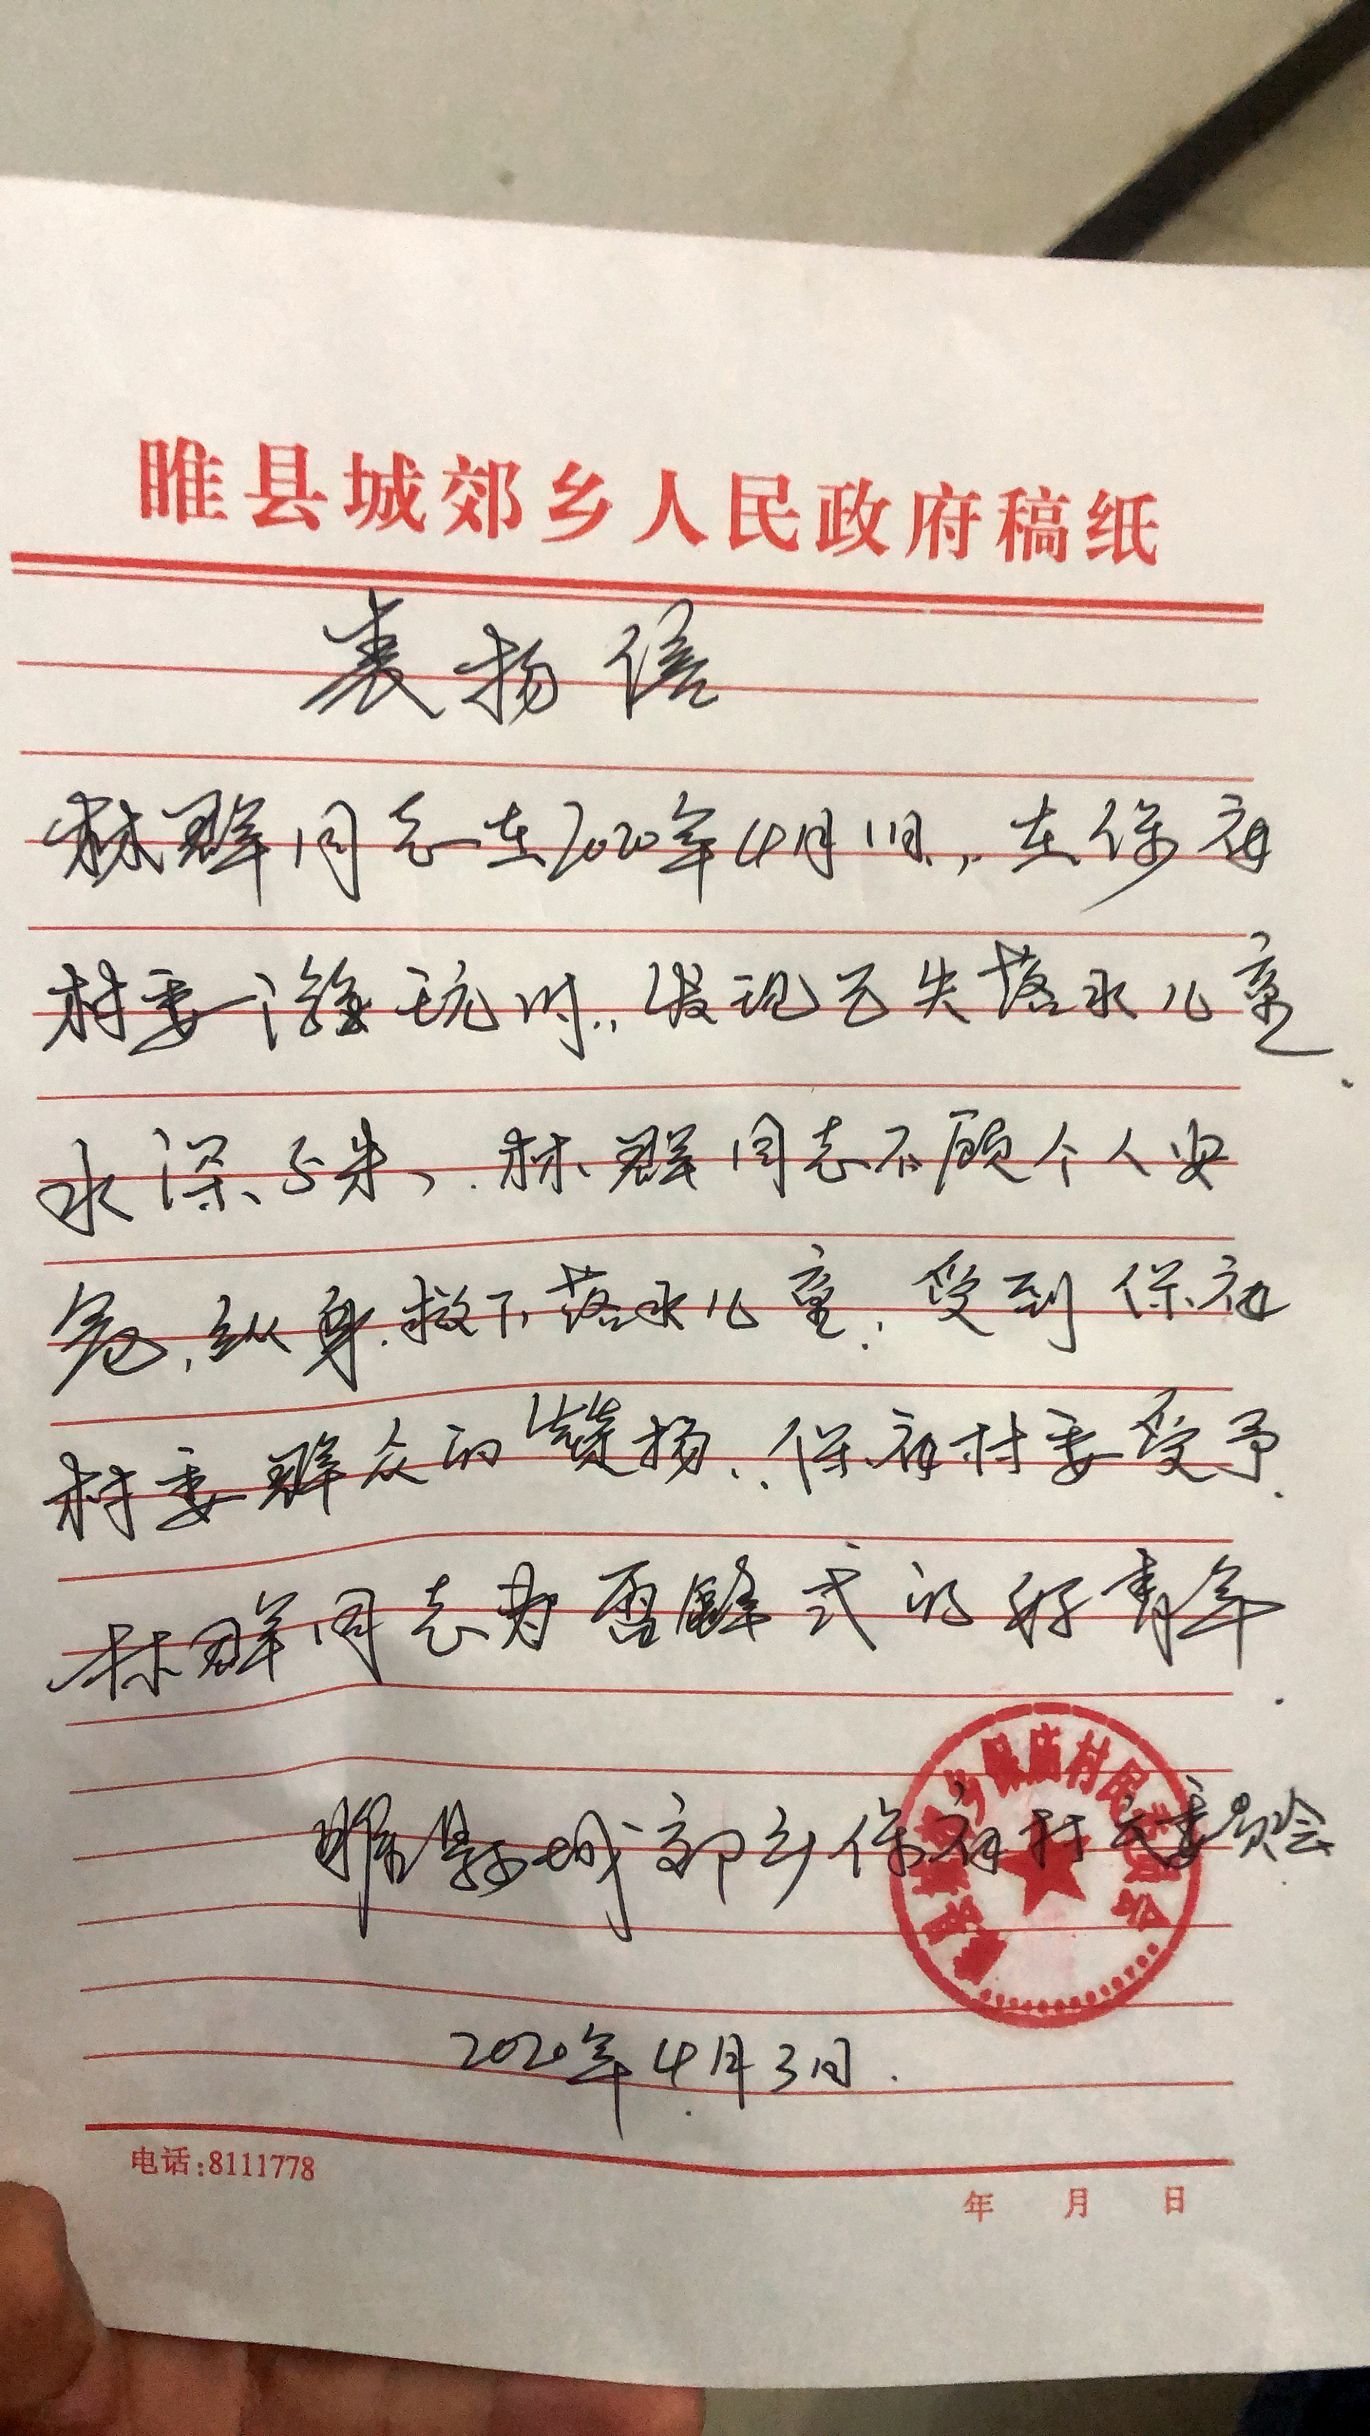 睢县城郊乡人民政府稿纸
表扬信
林群同志在2020年4月1日,在保庙
村委游玩时,发现已失落水儿童
水深5米,林群同志不顾个人安
危,纵身救下落水儿童,受到保庙
村委群众的赞扬,保庙村委受予
林群同志为雷锋式的好青年.
睢县城郊乡保庙村民委员会
2020年4月3日.
电话:8111778
年 月 日